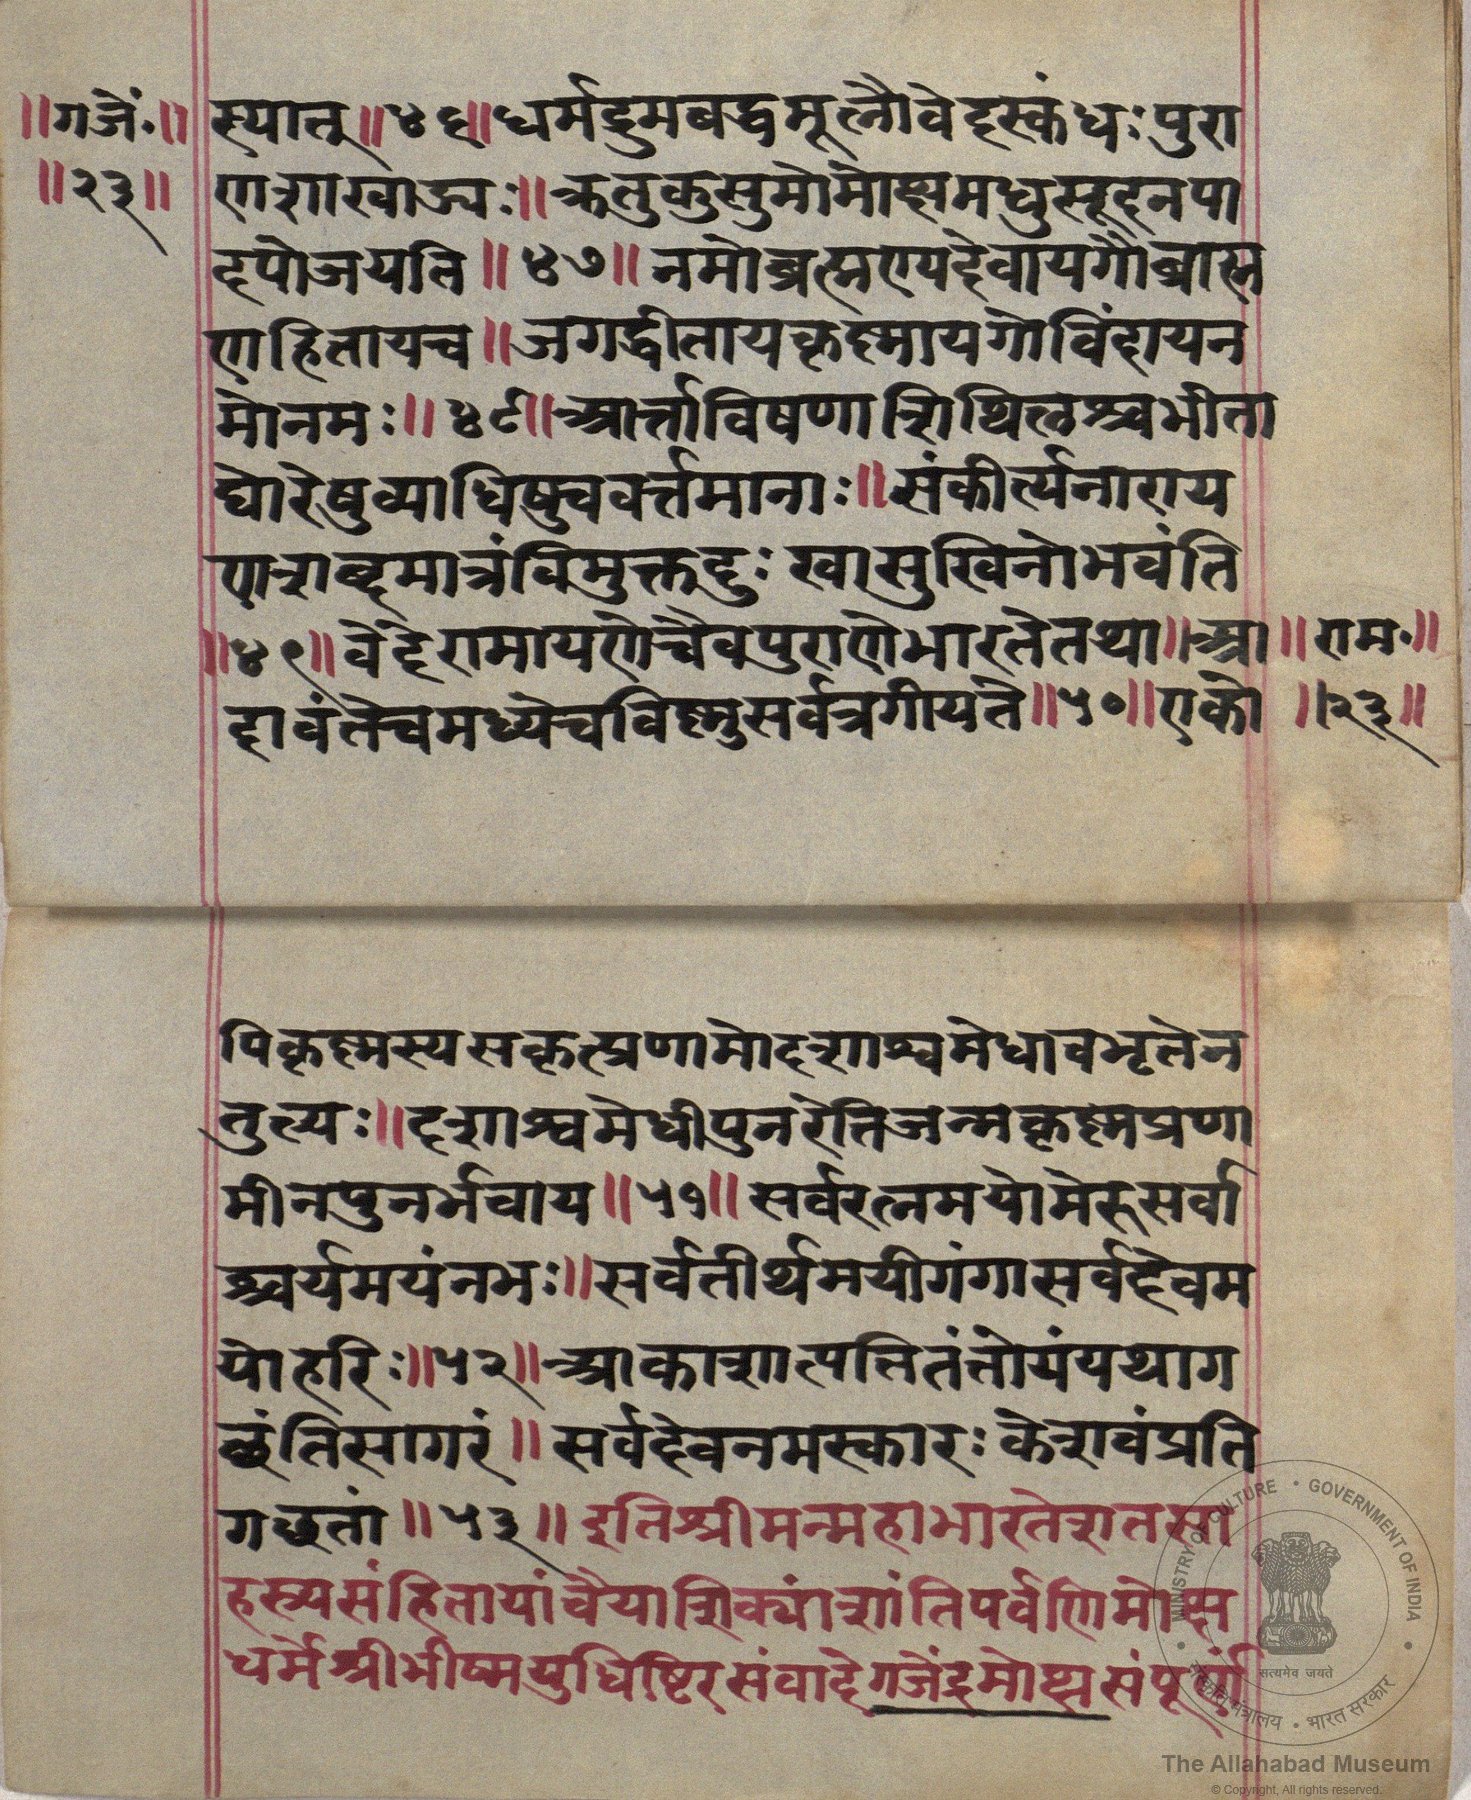 ॥गजें॰॥ स्यात्॥४६॥धर्मद्रुमबद्धमूलौवेदस्कंधःपुरा
॥२३॥ णशाखाढ्यः॥क्रतुकुसुमोमोक्षमधुसूदनपा
दपोजयति॥४७॥नमोब्रह्मण्यदेवायगौब्राह्म
णहितायच॥जगद्धीतायकृष्णायगोविंदायन
मोनमः॥४८॥आर्त्ताविषणाशिथिलश्चभीता
घोरेषुव्याधिषुचवर्त्तमानाः॥संकीर्त्यनाराय
णशब्दमात्रंविमुक्तदुःखासुखिनोभवंति
॥४९॥वेदेरामायणेचैवपुराणेभारतेतथा॥आ ॥राम॰॥
दावंतेचमध्येचविष्णुसर्वत्रगीयते॥५०॥एको ॥२३॥
पिकृष्णस्यसकृत्प्रणामोदशाश्वमेधावभृतेन
तुल्यः॥दशाश्वमेधीपुनरेतिजन्मकृष्णप्रणा
मीनपुनर्भवाय॥५१॥सर्वरत्नमयोमेरुसर्वा
श्चर्यमयंनभः॥सर्वतीर्थमयीगंगासर्वदेवम
योहरिः॥५२॥आकाशात्पत्तितंतोयंयथाग
छंतिसागरं॥सर्वदेवनमस्कारःकेशवंप्रति
गछतां॥५३॥इतिश्रीमन्महाभारतेशतसा
हस्त्र्यसंहितायांवैयाशिक्यांशांतिपर्वणिमोक्ष
धर्मेश्रीभीष्मयुधिष्टिरसंवादेगजेंद्रमोक्षसंपूर्णं
MINISTRY OF CULTURE • GOVERNMENT OF INDIA
सत्यमेव जयते
संस्कृति मंत्रालय • भारत सरकार
The Allahabad Museum
© Copyright, All rights reserved.